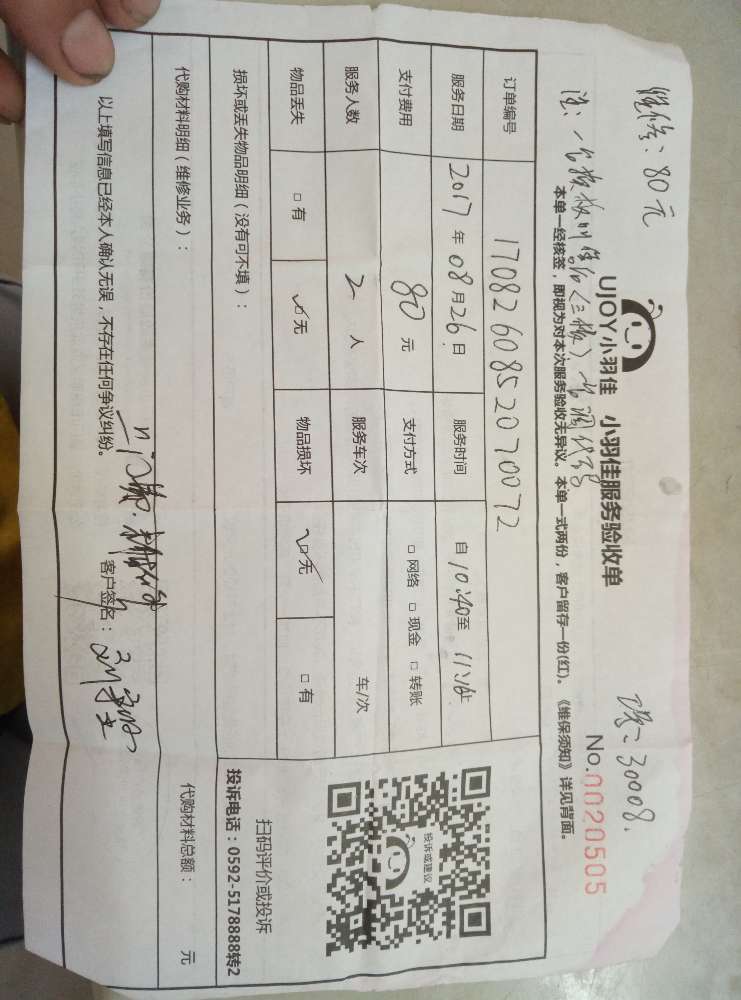 维修：80元
No.0020505
30008.
UJOY小羽佳 小羽佳服务验收单
本单一经核签，即视为对本次服务验收无异议。本单一式两份，客户留存一份(红)。《维保须知》详见背面。
订单编号 1708260852070072
服务日期 2017年08月26日 服务时间 自10:40至11:16止
支付费用 80元 支付方式 □网络 □现金 □转账
服务人数 2人 服务车次 车/次
物品丢失 □有 ☑无 物品损坏 ☑无 □有
投诉或建议
扫码评价或投诉
投诉电话：0592-5178888转2
损坏或丢失物品明细（没有可不填）：
代购材料明细（维修业务）：
代购材料总额： 元
以上填写信息已经本人确认无误，不存在任何争议纠纷。
客户签名：